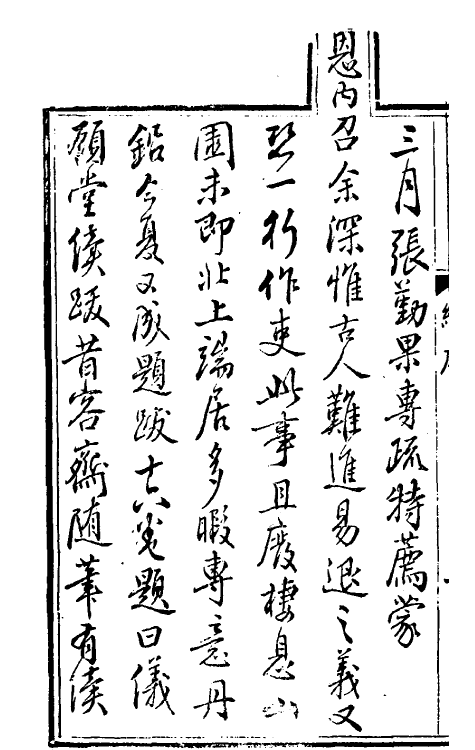 三月張勤果專疏特薦蒙
恩内召余深惟古人難進易退之義又
恐一行作吏此事且廢棲息山
園未即北上端居多暇專意丹
鉛今夏又成題跋十六卷題曰儀
顧堂續跋昔容齋随筆有續